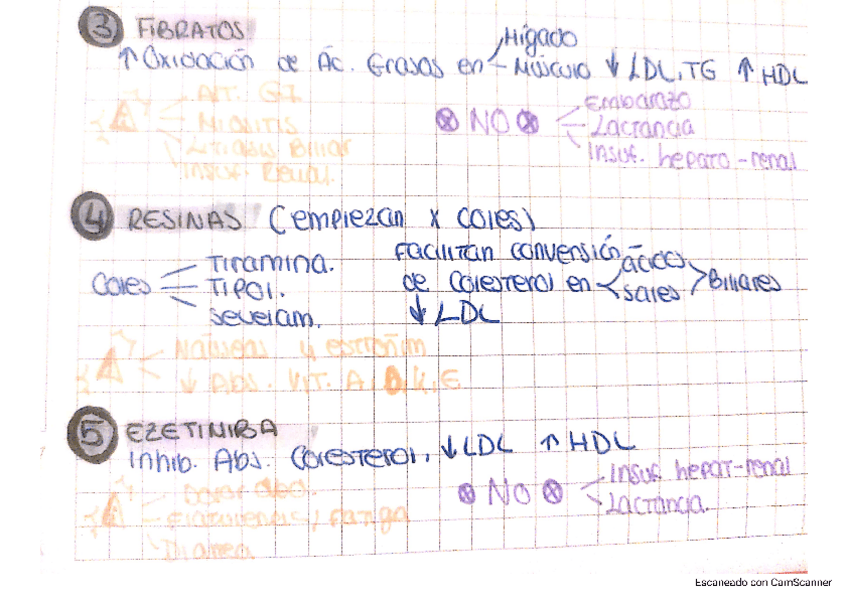 3 FIBRATOS
↑ Oxidación de Ác. Grasos en Hígado
Músculo ↓ LDL, TG ↑ HDL
Alt. GI
Miositis
Litiasis Biliar
Insuf. Renal.
NO
Embarazo
Lactancia
Insuf. hepato-renal
4 RESINAS (empiezan x coles)
Coles
Tiramina.
TIPOl.
sevelam.
Facilitan conversión
de colesterol en ácidos
sales > Biliares
↓ LDL
Naúseas y estreñim
↓ Abs. VIT. A, D, K, E
5 EZETINIBA
Inhib. Abs. Colesterol, ↓ LDL ↑ HDL
Dolor abd.
Flatulencias / Fatiga
Diarrea.
NO
Insuf. hepat-renal
Lactancia.
Escaneado con CamScanner